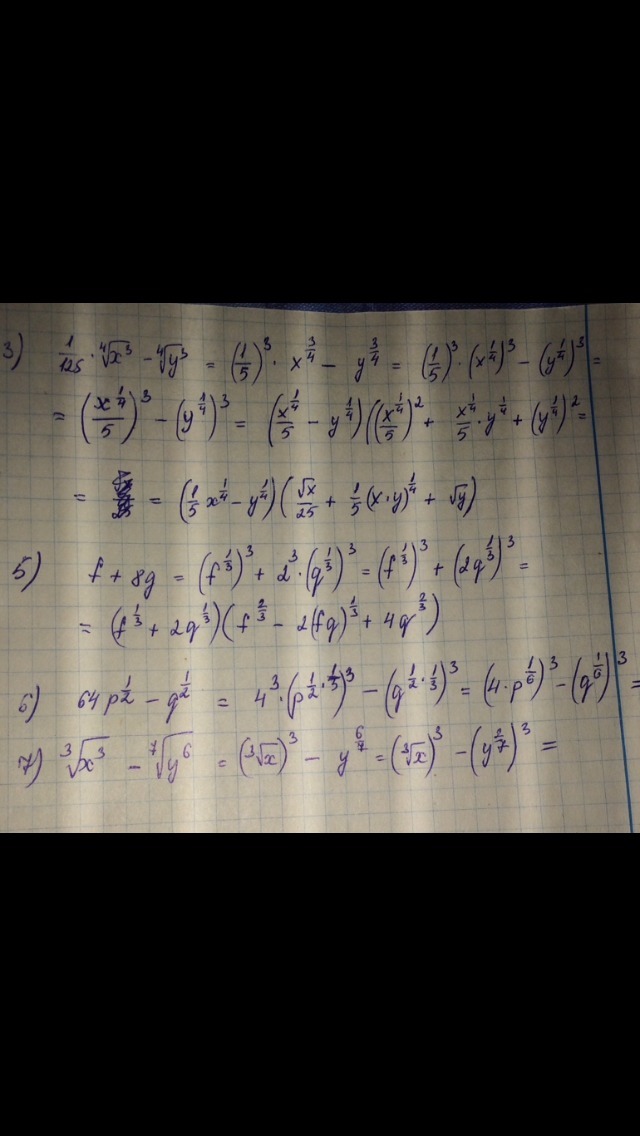 3) 1/125 · ⁴√x³ - ⁴√y³ = (1/5)³ · x^(3/4) - y^(3/4) = (1/5)³ · (x^(1/4))³ - (y^(1/4))³ =
= (x^(1/4)/5)³ - (y^(1/4))³ = (x^(1/4)/5 - y^(1/4))((x^(1/4)/5)² + x^(1/4)/5 · y^(1/4) + (y^(1/4))² =
= = (1/5 x^(1/4) - y^(1/4))(√x/25 + 1/5 (x·y)^(1/4) + √y)
5) f + 8g = (f^(1/3))³ + 2³ · (g^(1/3))³ = (f^(1/3))³ + (2g^(1/3))³ =
= (f^(1/3) + 2g^(1/3))(f^(2/3) - 2(fg)^(1/3) + 4g^(2/3))
6) 64p^(1/2) - g^(1/2) = 4³ · (p^(1/2 · 1/3))³ - (g^(1/2 · 1/3))³ = (4 · p^(1/6))³ - (g^(1/6))³ =
7) ³√x³ - ⁷√y⁶ = (³√x)³ - y^(6/7) = (³√x)³ - (y^(2/7))³ =